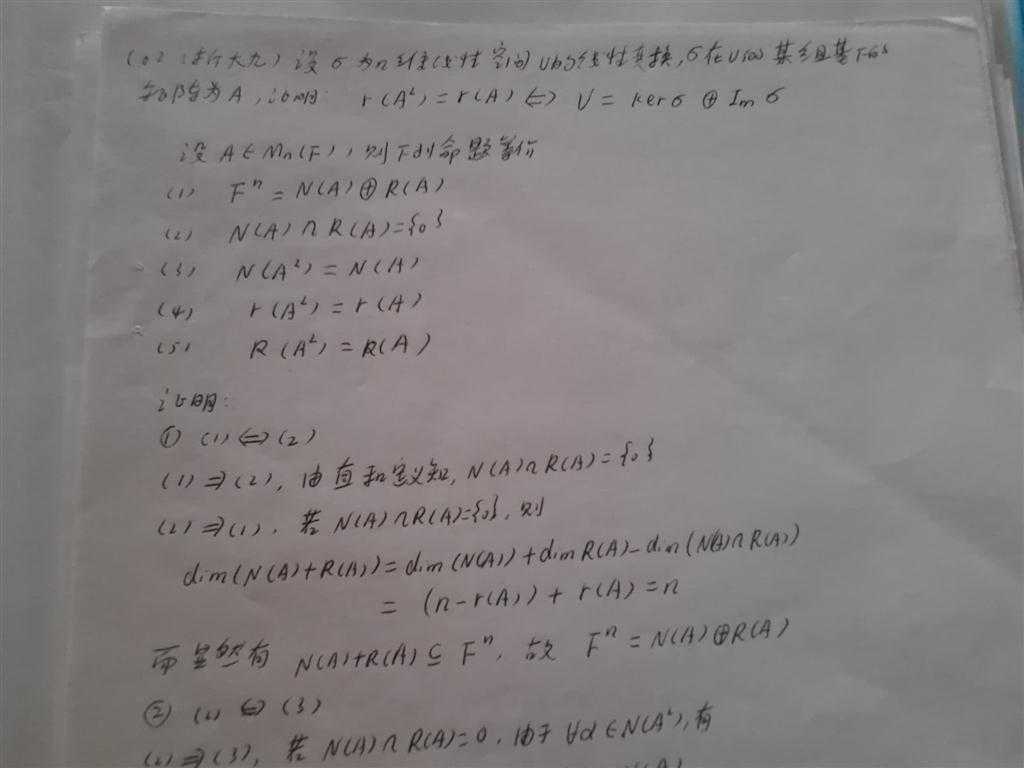 (02 浙大九) 设 σ 为 n 维线性空间 V 的线性变换, σ 在 V 的 某组基下的
矩阵为 A, 证明: r(A²) = r(A) ⇔ V = ker σ ⊕ Im σ
设 A ∈ Mn(F), 则下列命题等价
(1) Fⁿ = N(A) ⊕ R(A)
(2) N(A) ∩ R(A) = {0}
(3) N(A²) = N(A)
(4) r(A²) = r(A)
(5) R(A²) = R(A)
证明:
① (1) ⇔ (2)
(1) ⇒ (2), 由直和定义知, N(A) ∩ R(A) = {0}
(2) ⇒ (1), 若 N(A) ∩ R(A) = {0}, 则
dim(N(A)+R(A)) = dim(N(A)) + dim R(A) - dim(N(A) ∩ R(A))
= (n-r(A)) + r(A) = n
而显然有 N(A)+R(A) ⊆ Fⁿ, 故 Fⁿ = N(A) ⊕ R(A)
② (2) ⇔ (3)
(2) ⇒ (3), 若 N(A) ∩ R(A) = 0, 由于 ∀α ∈ N(A²), 有